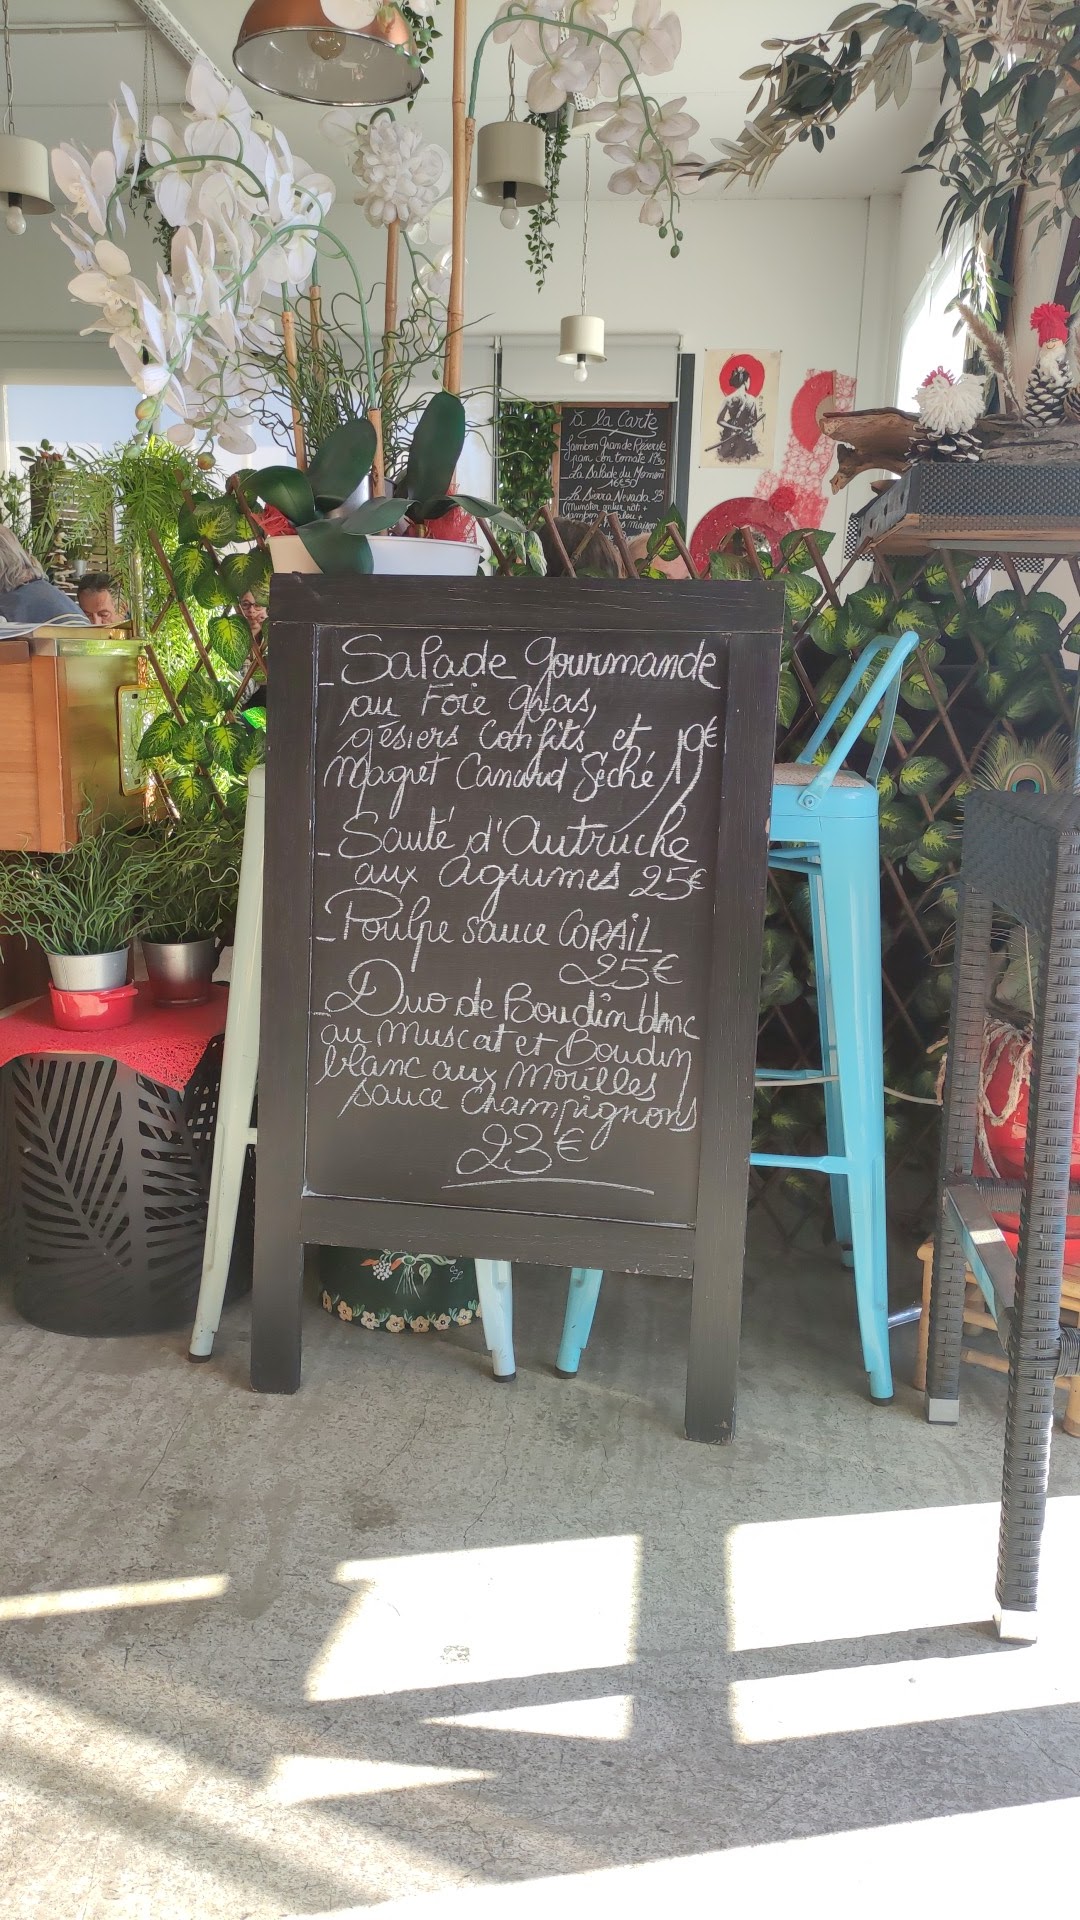 à la Carte
Jambon Grande Réserve
pan con tomate 17€50
La Salade du Moment
16€50
La Sierra Nevada 23€
(Munster entier rôti +
maison
- Salade Gourmande
au Foie gras,
gésiers Confits et 19€
Magret Canard Séché
- Sauté d'Autruche
aux Agrumes 25€
- Poulpe sauce CORAIL
25€
- Duo de Boudin blanc
au Muscat et Boudin
blanc aux Morilles
sauce Champignons
23€